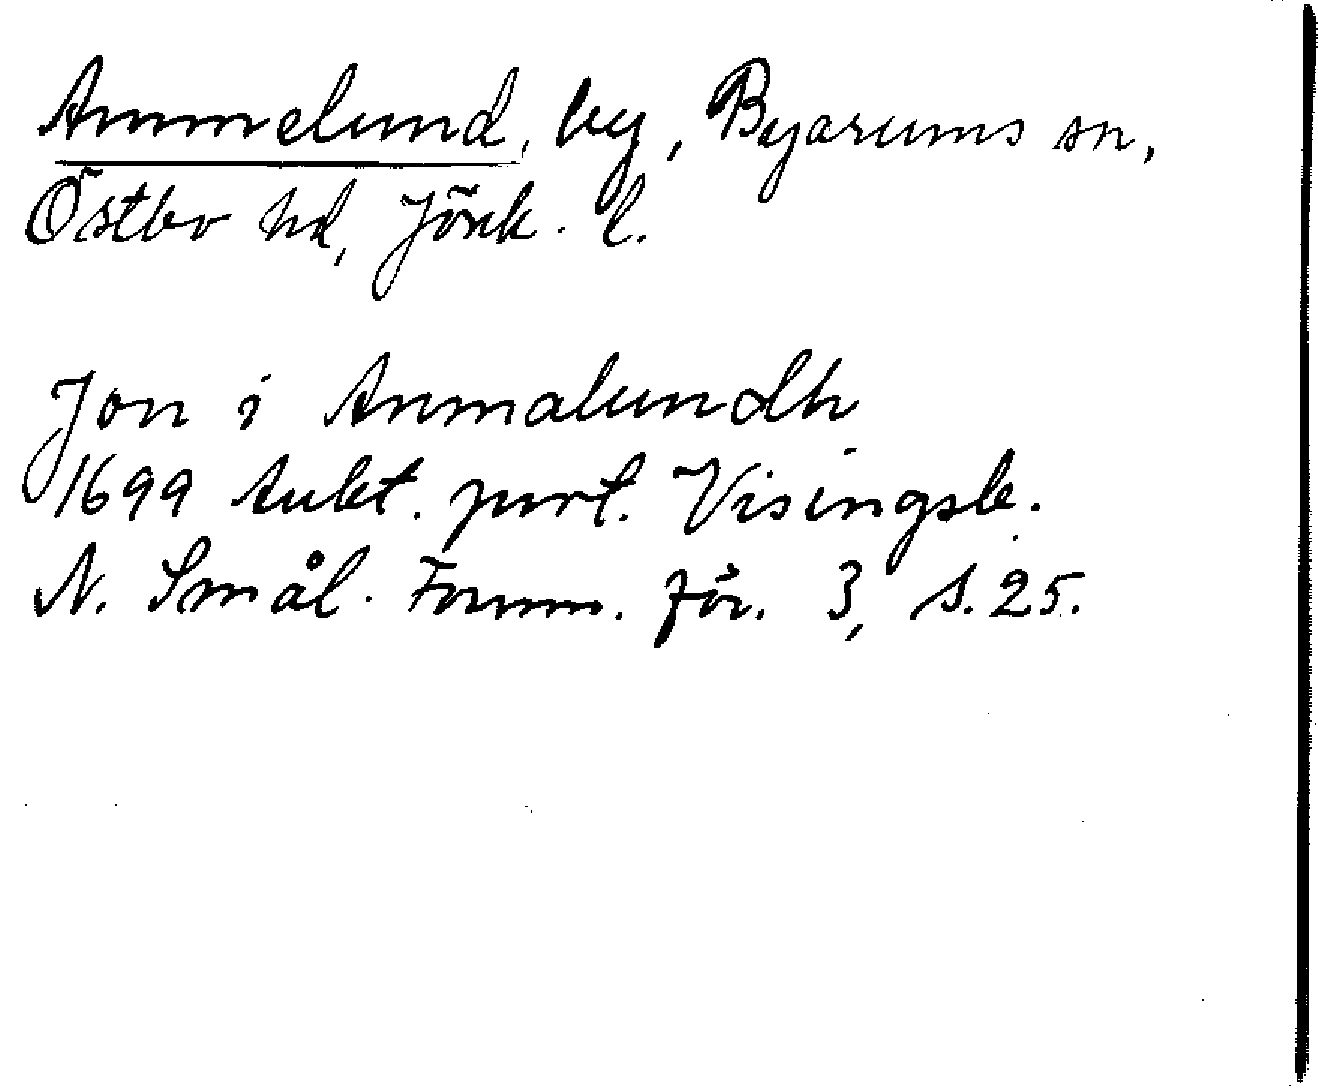 Ammelund, by, Byarums sn,
Östbo hd, Jönk. l.
Jon i Anmalundh
1699 Aukt. prot. Visingsb.
N. Smål. Fornm. för. 3, s. 25.